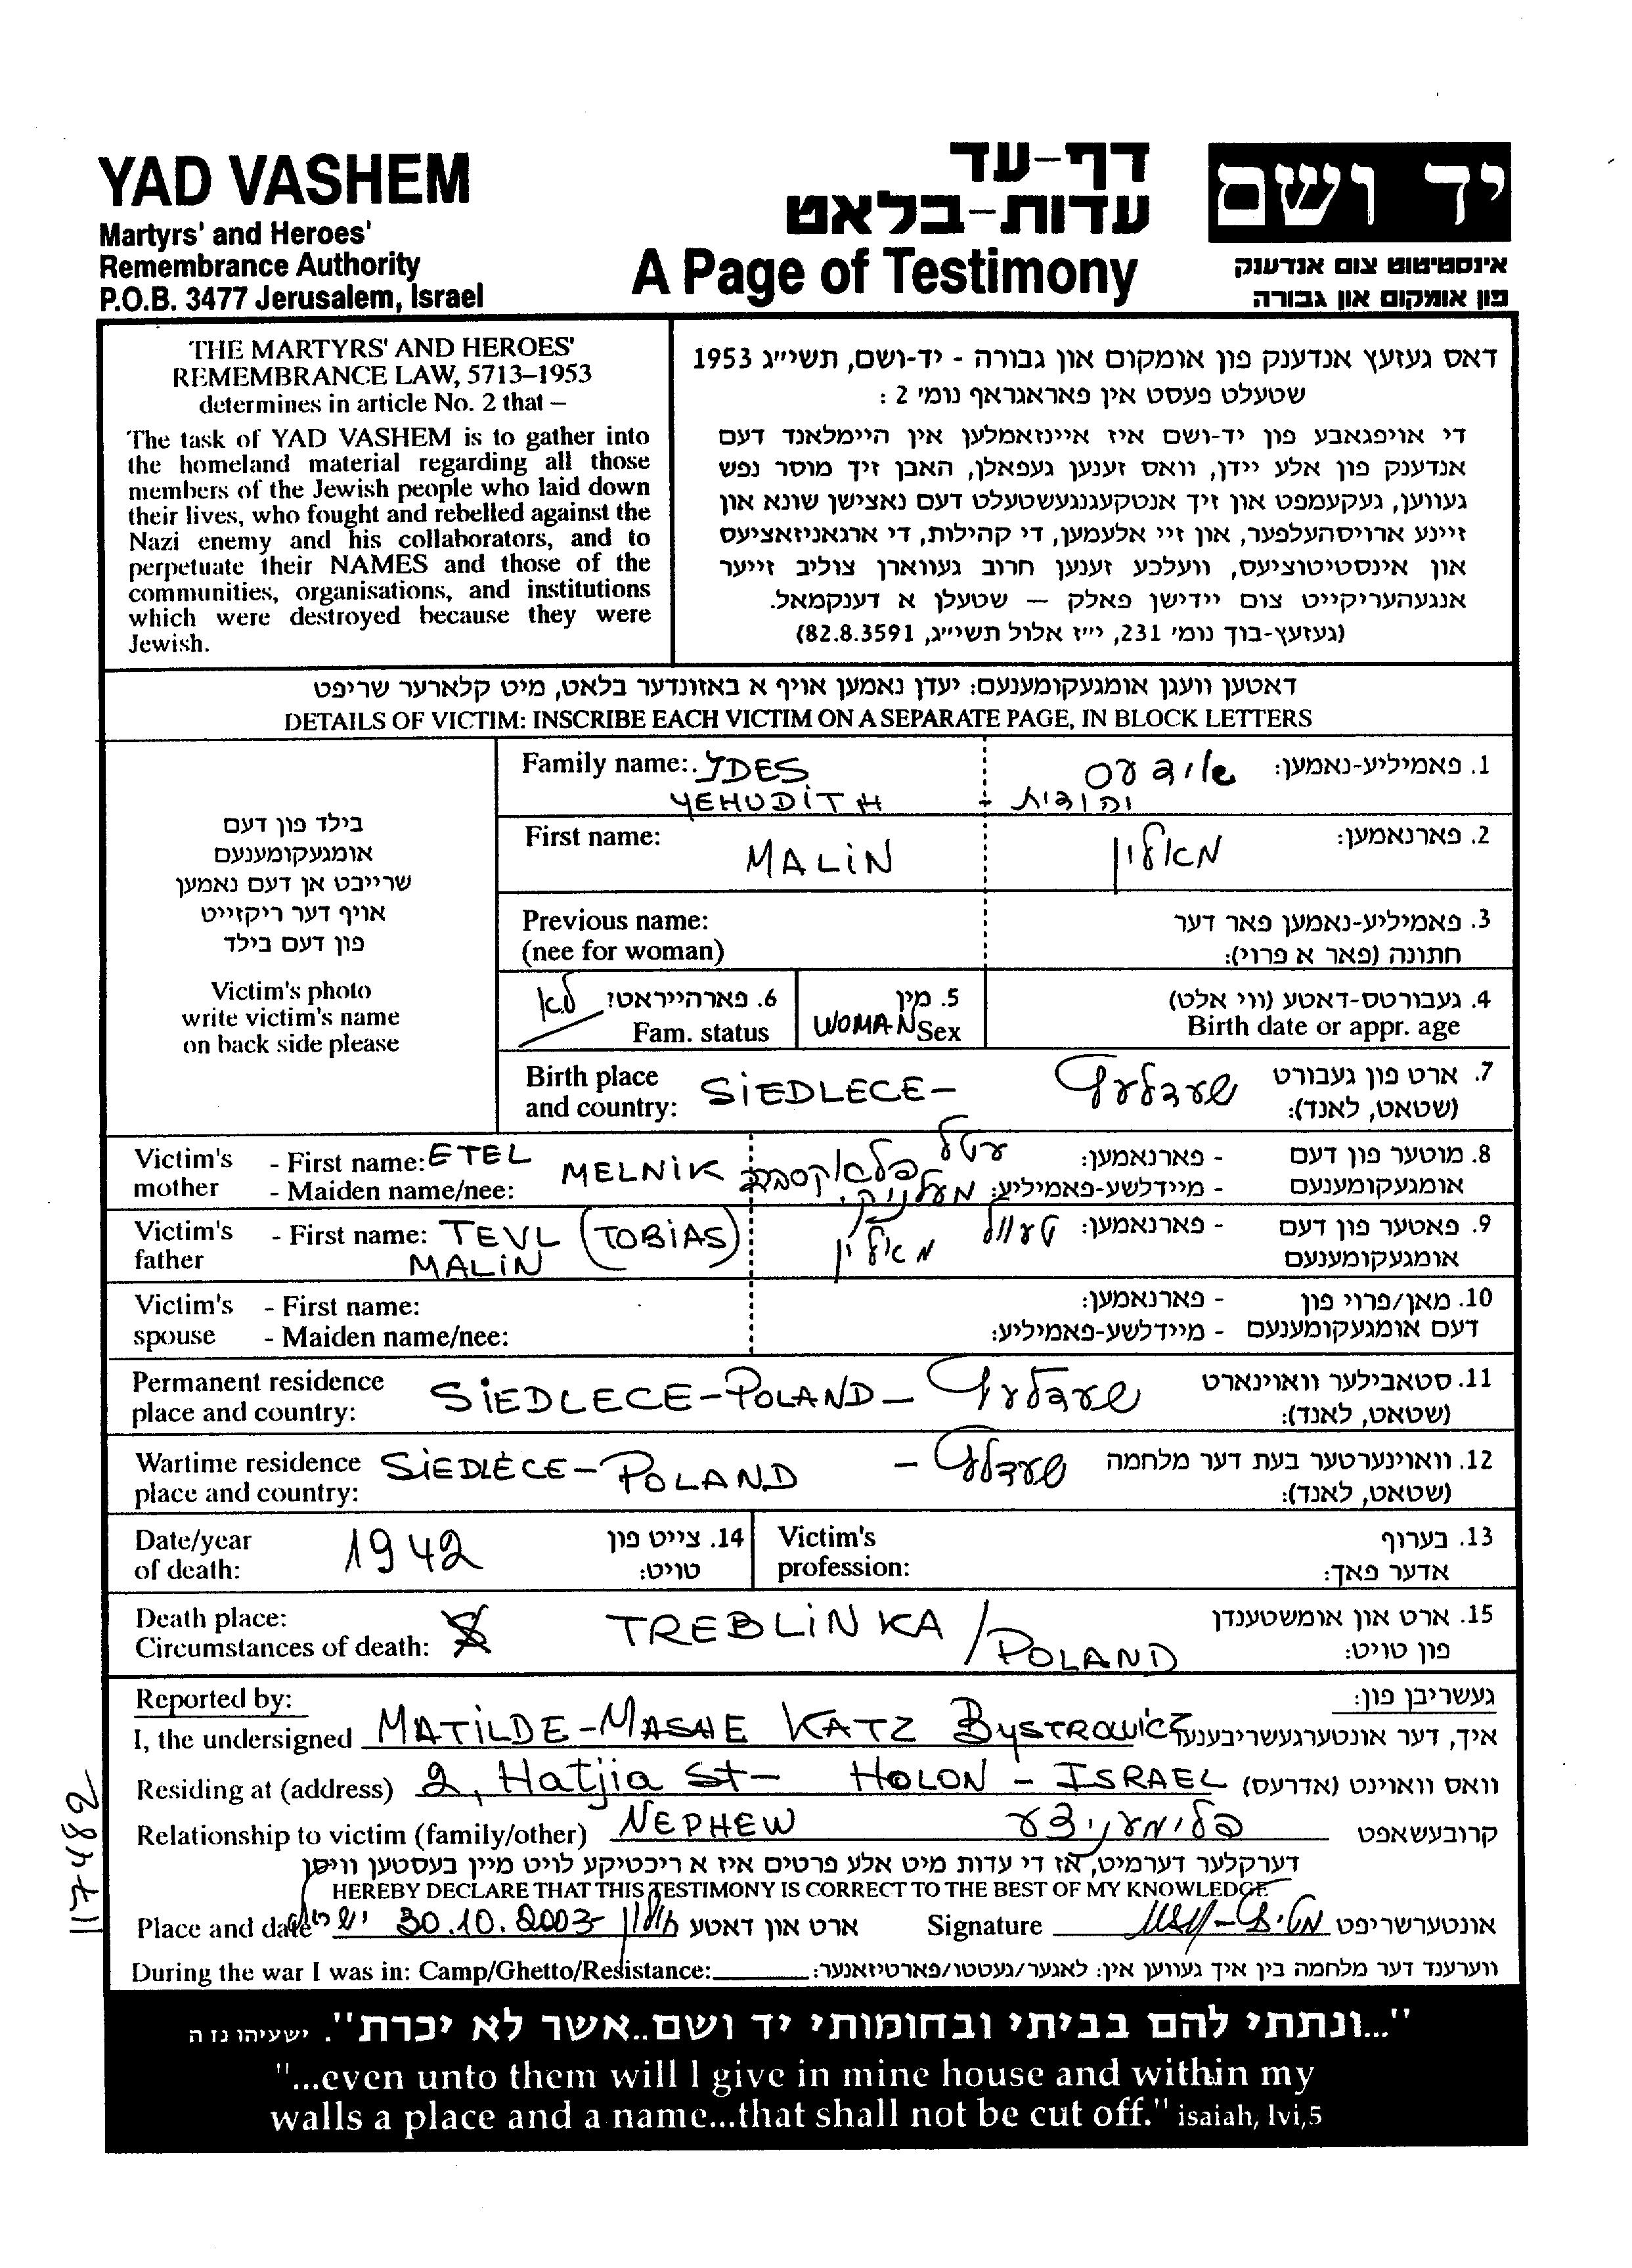 YAD VASHEM
Martyrs' and Heroes'
Remembrance Authority
P.O.B. 3477 Jerusalem, Israel
דף-עד
עדות-בלאט
A Page of Testimony
יד ושם
אינסטיטוט צום אנדענק
פון אומקום און גבורה
THE MARTYRS' AND HEROES'
REMEMBRANCE LAW, 5713–1953
determines in article No. 2 that –
The task of YAD VASHEM is to gather into
the homeland material regarding all those
members of the Jewish people who laid down
their lives, who fought and rebelled against the
Nazi enemy and his collaborators, and to
perpetuate their NAMES and those of the
communities, organisations, and institutions
which were destroyed because they were
Jewish.
דאס געזעץ אנדענק פון אומקום און גבורה - יד-ושם, תשי״ג 1953
שטעלט פעסט אין פאראגראף נומ׳ 2 :
די אויפגאבע פון יד-ושם איז איינזאמלען אין היימלאנד דעם
אנדענק פון אלע יידן, וואס זענען געפאלן, האבן זיך מוסר נפש
געווען, געקעמפט און זיך אנטקעגנגעשטעלט דעם נאצישן שונא און
זיינע ארויסהעלפער, און זיי אלעמען, די קהילות, די ארגאניזאציעס
און אינסטיטוציעס, וועלכע זענען חרוב געווארן צוליב זייער
אנגעהעריקייט צום יידישן פאלק — שטעלן א דענקמאל.
(געזעץ-בוך נומ׳ 231, י״ז אלול תשי״ג, 82.8.3591)
דאטען וועגן אומגעקומענעם: יעדן נאמען אויף א באזונדער בלאט, מיט קלארער שריפט
DETAILS OF VICTIM: INSCRIBE EACH VICTIM ON A SEPARATE PAGE, IN BLOCK LETTERS
בילד פון דעם
אומגעקומענעם
שרייבט אן דעם נאמען
אויף דער ריקזייט
פון דעם בילד
Victim's photo
write victim's name
on back side please
Family name: YDES אידעס 1. פאמיליע-נאמען:
YEHUDiTH - יהודית
First name: MALiN מאלין 2. פארנאמען:
Previous name: 3. פאמיליע-נאמען פאר דער
(nee for woman) חתונה (פאר א פרוי):
לא 6. פארהייראטי 5. מין 4. געבורטס-דאטע (ווי אלט)
Fam. status WOMAN Sex Birth date or appr. age
Birth place SiEDLECE- שעדלעץ 7. ארט פון געבורט
and country: (שטאט, לאנד):
Victim's - First name: ETEL MELNiK עטל - פארנאמען: 8. מוטער פון דעם
mother - Maiden name/nee: מעלניק - מיידלשע-פאמיליע: אומגעקומענעם
Victim's - First name: TEVL (TOBiAS) טעוול - פארנאמען: 9. פאטער פון דעם
father MALiN מאלין אומגעקומענעם
Victim's - First name: - פארנאמען: 10. מאן/פרוי פון
spouse - Maiden name/nee: - מיידלשע-פאמיליע: דעם אומגעקומענעם
Permanent residence SiEDLECE-POLAND- שעדלעץ 11. סטאבילער וואוינארט
place and country: (שטאט, לאנד):
Wartime residence SiEDLECE-POLAND - שעדלעץ 12. וואוינערטער בעת דער מלחמה
place and country: (שטאט, לאנד):
Date/year 1942 14. צייט פון Victim's 13. בערוף
of death: טויט: profession: אדער פאך:
Death place: TREBLiNKA/POLAND 15. ארט און אומשטענדן
Circumstances of death: פון טויט:
Reported by: געשריבן פון:
I, the undersigned MATiLDE-MASHE KATZ BYSTROWiCZ איך, דער אונטערגעשריבענער
Residing at (address) 2, Hatjia St- HOLON - ISRAEL וואס וואוינט (אדרעס)
Relationship to victim (family/other) NEPHEW פלימעניצע קרובעשאפט
דערקלער דערמיט, אז די עדות מיט אלע פרטים איז א ריכטיקע לויט מיין בעסטען וויסן
HEREBY DECLARE THAT THIS TESTIMONY IS CORRECT TO THE BEST OF MY KNOWLEDGE
Place and date ישראל 30.10.2003- חולון ארט און דאטע Signature אונטערשריפט
During the war I was in: Camp/Ghetto/Resistance: ווערענד דער מלחמה בין איך געווען אין: לאגער/געטטו/פארטיזאנער:
117482
"...ונתתי להם בביתי ובחומותי יד ושם..אשר לא יכרת". ישעיהו נז ה
"...even unto them will I give in mine house and within my
walls a place and a name...that shall not be cut off." isaiah, lvi,5